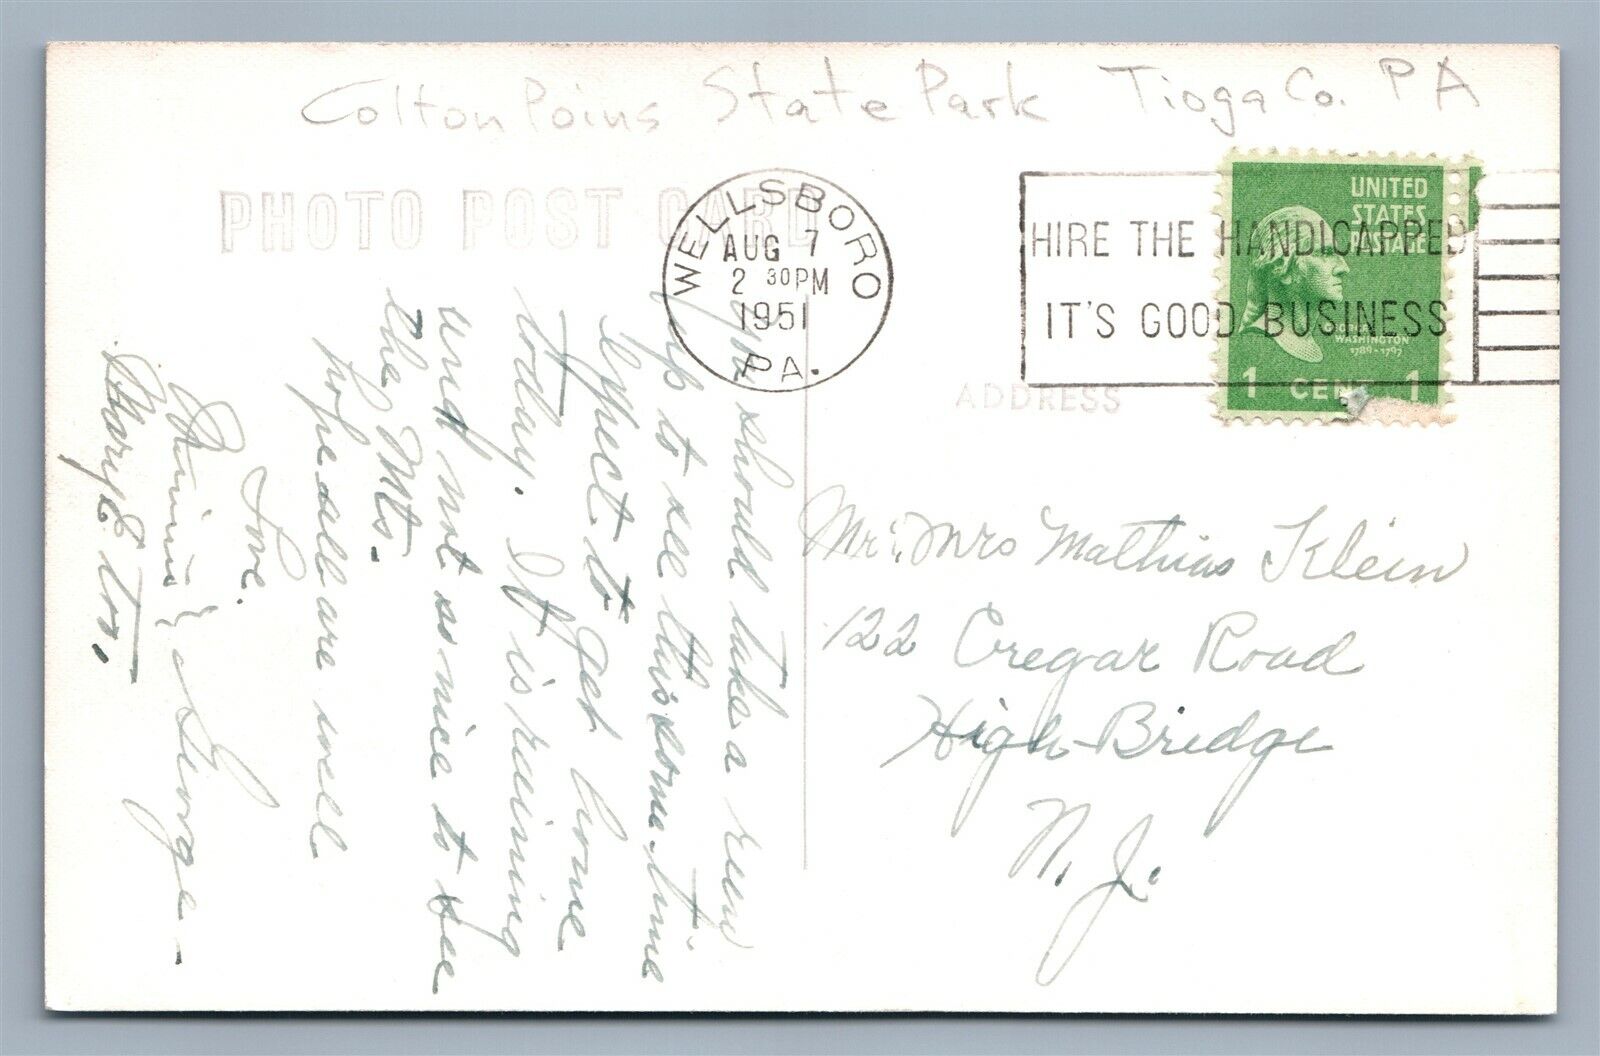 Colton Poins State Park Tioga Co. PA
PHOTO POST CARD
WELLSBORO
AUG 7
2 30PM
1951
PA.
HIRE THE HANDICAPPED
IT'S GOOD BUSINESS
UNITED
STATES
POSTAGE
GEORGE
WASHINGTON
1789-1797
1 CENT 1
ADDRESS
You should take a run
up to see this some-time
Expect to get home
today. It is raining
and not so nice to see
the Mts.
hope all are well
Love.
Minnie & George-
Mary E
Mr. Mrs Mathias Klein
122 Cregar Road
High-Bridge
N. J.